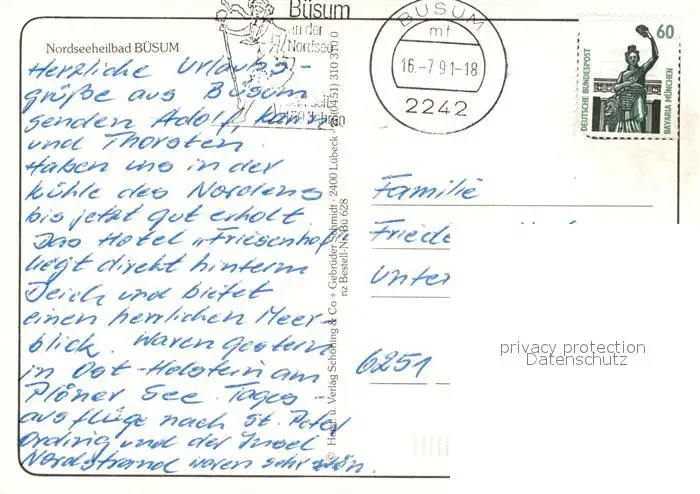 Büsum
an der
Nordsee
BÜSUM
mf
16.-7 91-18
2242
60
DEUTSCHE BUNDESPOST
BAVARIA MÜNCHEN
Nordseeheilbad BÜSUM
Herzliche Urlaubs-
grüße aus Büsum
senden Adolf,
und Thorsten.
Haben uns in der
kühle des Nordens
bis jetzt gut erholt.
Das Hotel "Friesenhof"
liegt direkt hinterm
Deich und bietet
einen herrlichen Meer-
blick. Waren gestern
in Ost-Holstein am
Plöner See. Tages-
ausflüge nach St. Peter
Ording und der Insel
Nordstrand waren sehr schön.
Verlag Schöning & Co + Gebrüder Schmidt · 2400 Lübeck · (0451) 310 310
nz Bestell-Nr. Bü 628
Familie
Friede
Unter
6251
privacy protection
Datenschutz